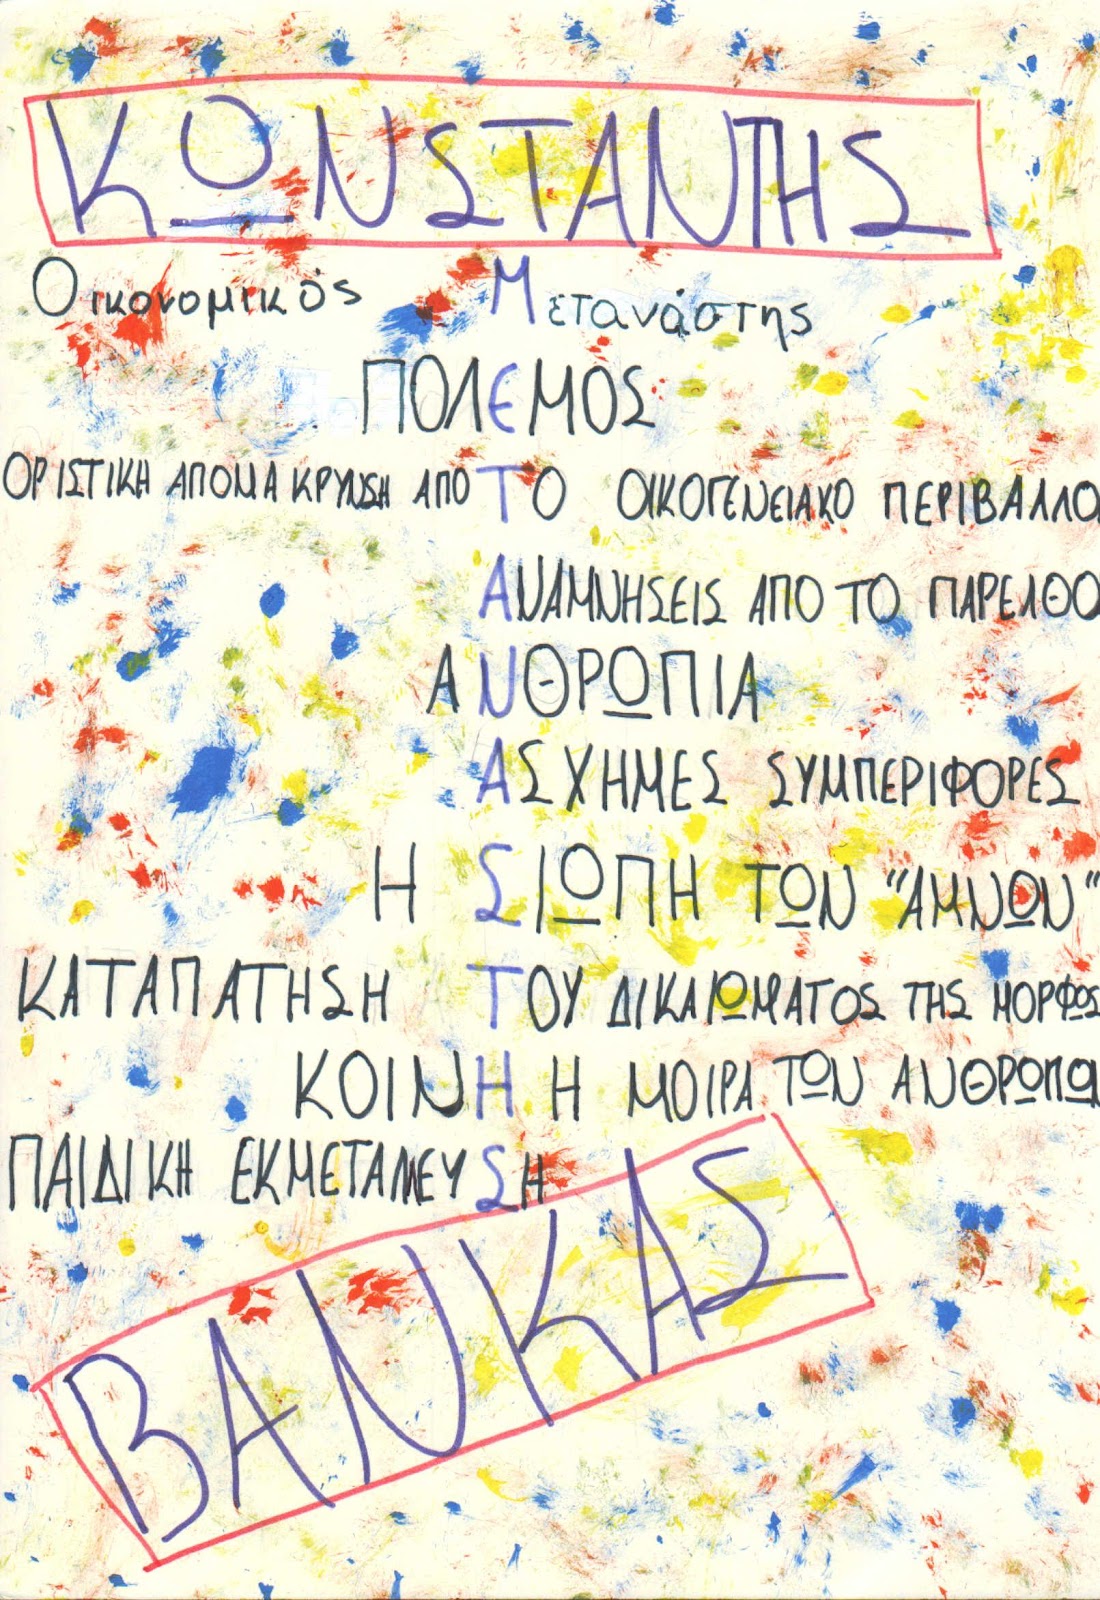 ΚΩΝΣΤΑΝΤΗΣ
Οικονομικός Μετανάστης
ΠΟΛΕΜΟΣ
ΟΡΙΣΤΙΚΗ ΑΠΟΜΑΚΡΥΝΣΗ ΑΠΟ ΤΟ ΟΙΚΟΓΕΝΕΙΑΚΟ ΠΕΡΙΒΑΛΛΟ
ΑΝΑΜΝΗΣΕΙΣ ΑΠΟ ΤΟ ΠΑΡΕΛΘΟ
ΑΝΘΡΩΠΙΑ
ΑΣΧΗΜΕΣ ΣΥΜΠΕΡΙΦΟΡΕΣ
Η ΣΙΩΠΗ ΤΩΝ "ΑΜΝΩΝ"
ΚΑΤΑΠΑΤΗΣΗ ΤΟΥ ΔΙΚΑΙΩΜΑΤΟΣ ΤΗΣ ΜΟΡΦΩΣ
ΚΟΙΝΗ Η ΜΟΙΡΑ ΤΩΝ ΑΝΘΡΩΠΩΝ
ΠΑΙΔΙΚΗ ΕΚΜΕΤΑΛΛΕΥΣΗ
ΒΑΝΚΑΣ